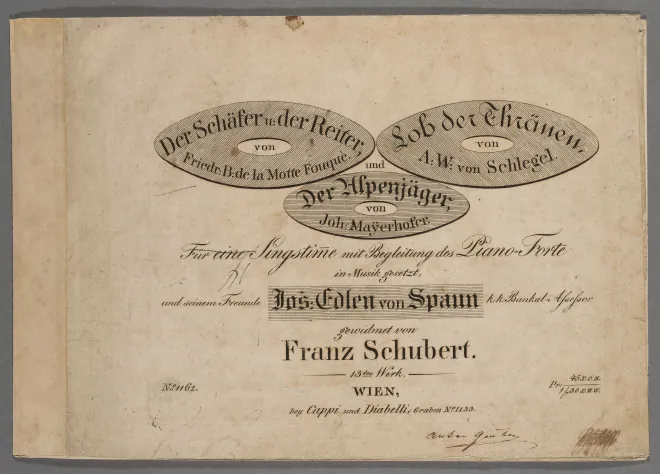 Der Schäfer u: der Reiter,
von
Friedr: B: de la Motte Fouque.
Lob der Thränen,
von
A: W: von Schlegel.
und
Der Alpenjäger,
von
Joh: Mayerhofer.
Für eine Singstim̅e mit Begleitung des Piano-Forte
in Musik gesetzt,
und seinem Freunde Jos: Edlen von Spaun k.k. Bankal-Assessor
gewidmet von
Franz Schubert.
13tes Werk.
No. 1162.
Pr: 45 x. C.M.
1 f 30 x. W.W.
WIEN,
bey Cappi und Diabelli, Graben No. 1133.